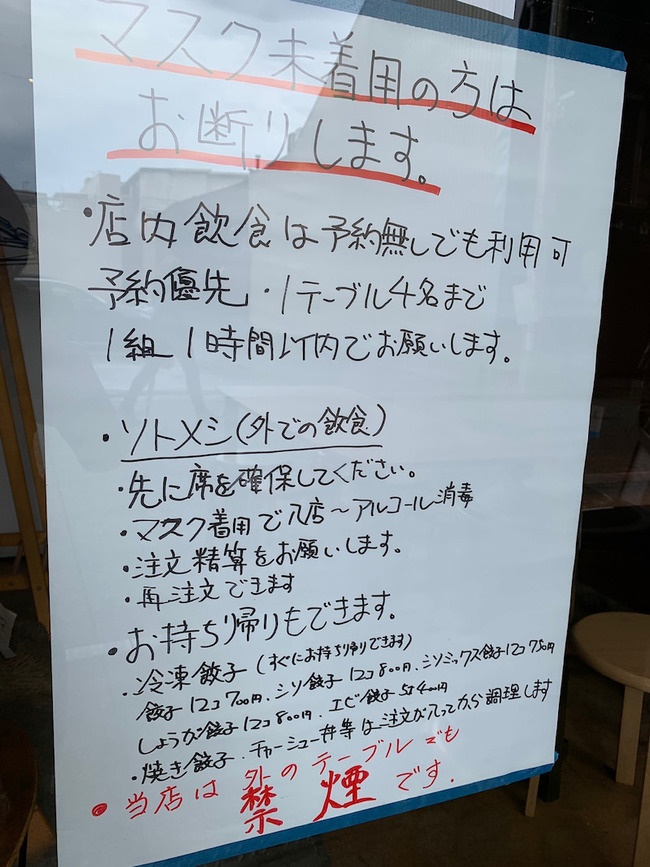 マスク未着用の方は
お断りします。
・店内飲食は予約無しでも利用可
予約優先・1テーブル4名まで
1組1時間以内でお願いします。
・ソトメシ(外での飲食)
・先に席を確保してください。
・マスク着用で入店～アルコール消毒
・注文精算をお願いします。
・再注文できます
・お持ち帰りもできます。
・冷凍餃子(すぐにお持ち帰りできます)
餃子12コ700円、シソ餃子12コ800円、シソミックス餃子12コ750円
しょうが餃子12コ800円、エビ餃子5コ400円
・焼き餃子、チャーシュー丼等は注文が入ってから調理します
・当店は外のテーブルでも
禁煙です.